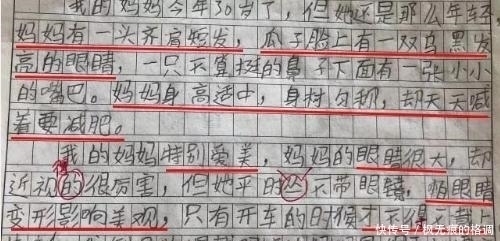 我的妈妈今年30岁了，但她还是那么年轻
妈妈有一头齐肩短发，瓜子脸上有一双乌黑发
亮的眼睛，一只不算挺的鼻子下面有一张小小
的嘴巴。妈妈身高适中，身材匀称，却天天喊
着要减肥。
我的妈妈特别爱美，妈妈的眼睛很大，却
得
近视的很厉害，但她平时从不带眼镜，怕眼睛
变形影响美观，只有开车的时候才不得不戴上
快传号/枫无痕的格调